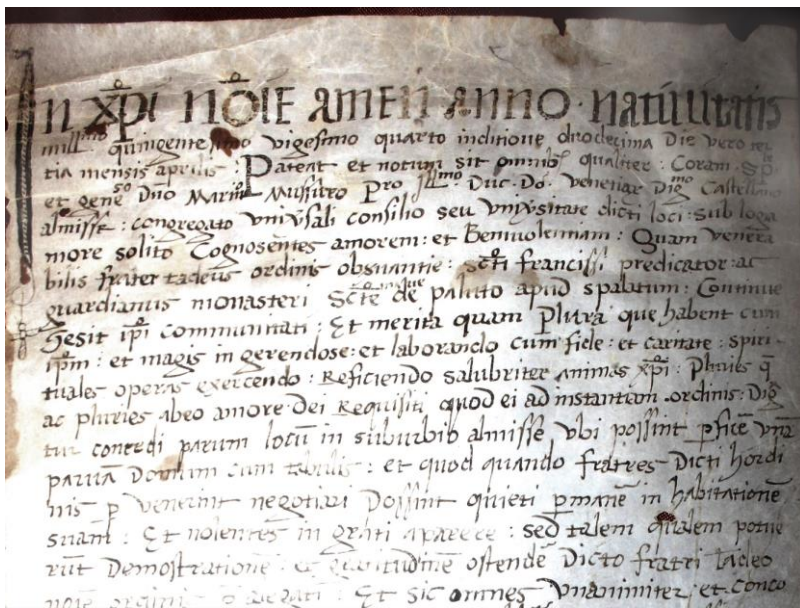 In χρ̄i nōiE AMEn Anno · natiuitatis
mill˜simo quingentesimo vigesimo quarto inditione duodecima Die vero ter
tia mensis aprilis : Pateat et notum sit omnibꝰ qualiter : Coram · Sp̄
et gene˜so Dn̄o Marin˜o Mussuro Pro Ill˜mo · Duc · Do˙ · venetiar Dig˜mo Castellano
almisse : congregato vniv̄sali consilio seu vniv̄sitate dicti loci : sub logia
more solito Cognosentes amorem : et Benivolentiam : Quam venera
bilis frater tadeus ordinis obsuantie : sc̄ti francissi predicator : ac
guardianus monasteri Sc̄te de paluto apud spalatum : Continue
Gesit ip̄i communitati : Et merita quam plura que habent cum
ip̄m : et magis in gerendose : et laborando cum fide : et caritate : spiri ·
tuales operas exercendo : Reficiendo salubriter animas χρ̄i : Pluries q̄
ac pluries abeo amore · dei Requisiti quod ei ad instantiam · ordinis : Diḡ
tur contedi parum locū in suburbio almisse vbi possint p̄ficē vnā
parvā Domum cum tabulis : et quod quando fratres Dicti hordi
nis p venerint negotiari Possint quieti p̄manē in habitationē
suam : Et nolentes in grati aparece : sed talem qualem potue
rūt Demostrationē : et gratitudinē ostendē Dicto fratri tadeo
noīe ordinis Et sic omnes vnanimiter : et conco